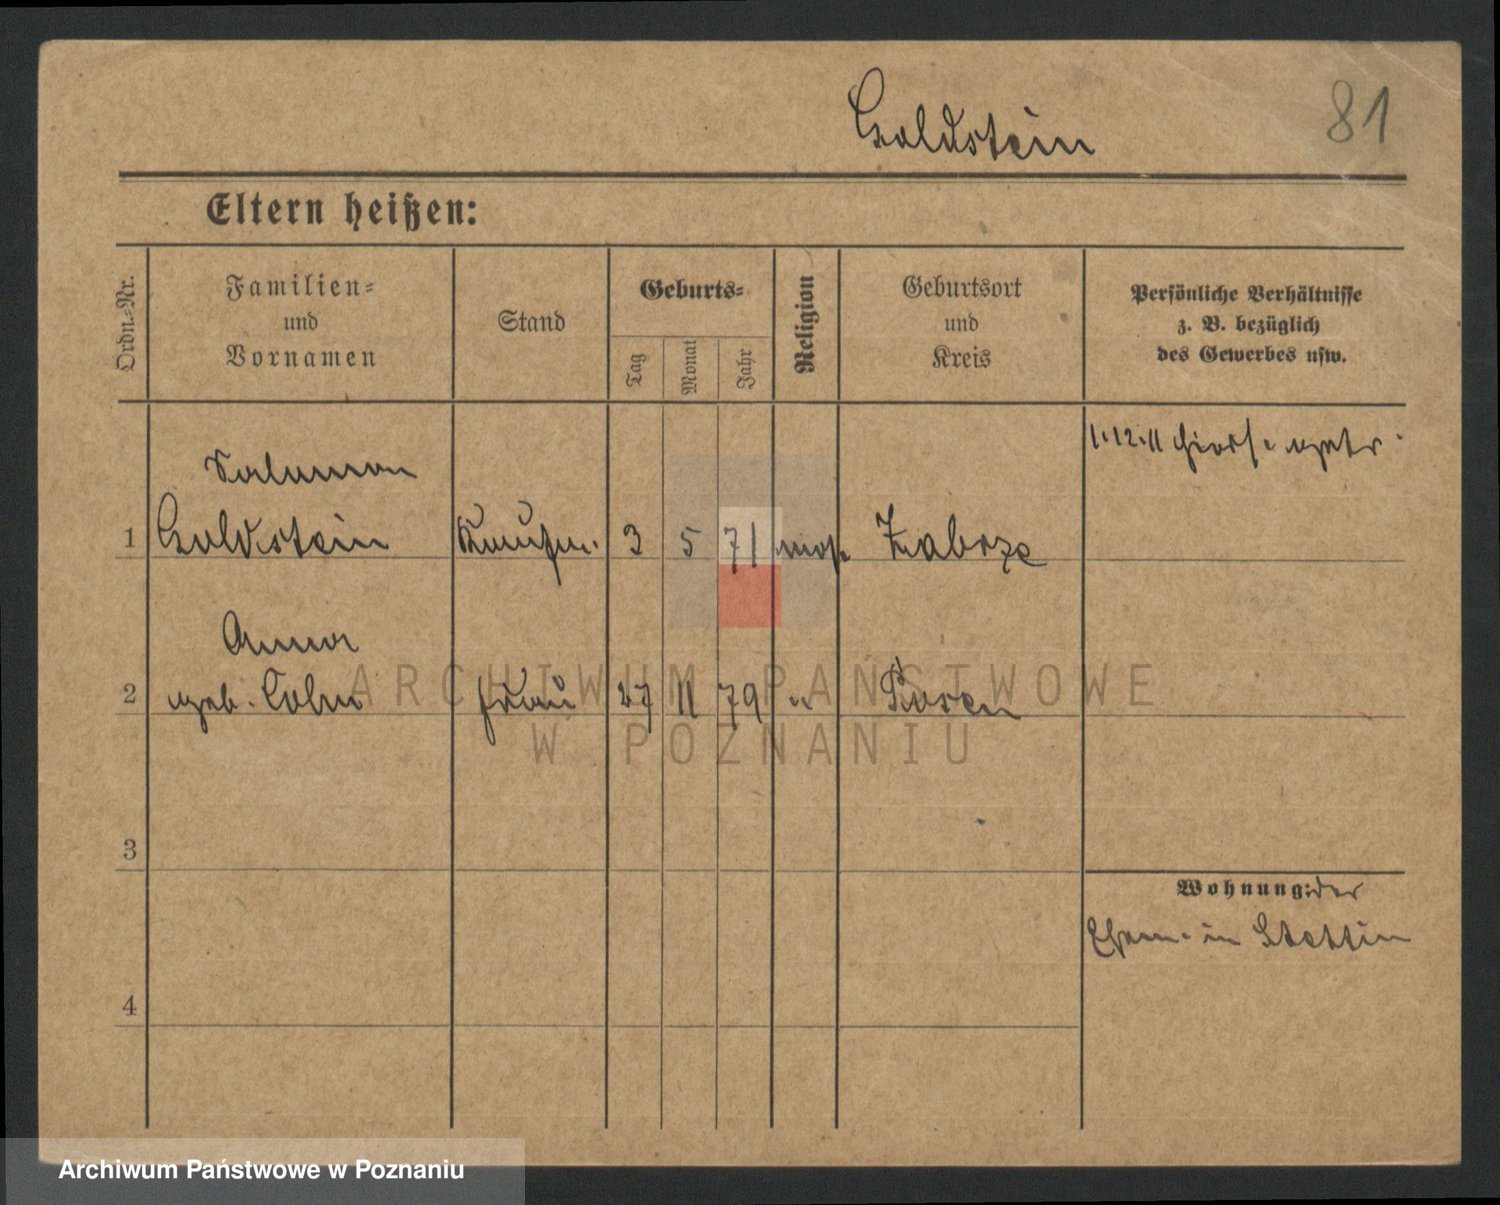 Goldstein
81
Eltern heißen:
Ordn.-Nr.
Familien-
und
Vornamen
Stand
Geburts-
Tag
Monat
Jahr
Religion
Geburtsort
und
Kreis
Persönliche Verhältnisse
z. B. bezüglich
des Gewerbes usw.
1.12.11
Salomon
1 Goldstein Kaufm. 3 5 71 mos. Zabrze
Anna
2 geb. Cohn Frau 27 11 79 " Posen
3
Wohnung: der
Ehem. in Stettin
4
ARCHIWUM PAŃSTWOWE
W POZNANIU
Archiwum Państwowe w Poznaniu